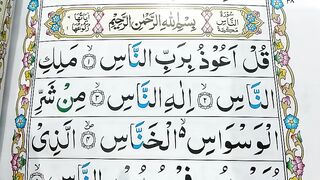 سُوْرَةُ النَّاسِ مَكِّيَّةٌ
بِسْمِ اللّٰهِ الرَّحْمٰنِ الرَّحِيْمِ
قُلْ اَعُوْذُ بِرَبِّ النَّاسِ ۝۱ مَلِكِ
النَّاسِ ۝۲ اِلٰهِ النَّاسِ ۝۳ مِنْ شَرِّ
الْوَسْوَاسِ ۙ۬ الْخَنَّاسِ ۝۴ الَّذِىْ